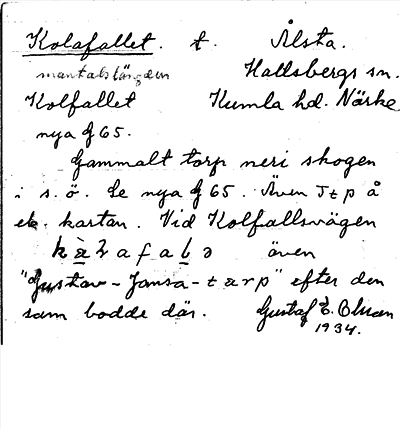 Kolafallet. t. Ålsta.
mantalslängden Hallsbergs sn.
Kolfallet Kumla hd. Närke
nya J 65.
Gammalt torp neri skogen
i s. ö. Se nya J 65. Även Jtp å
ek. kartan. Vid Kolfallsvägen
även
"Gustav-Jansa-tarp" efter den
som bodde där. Gustaf E. Olsson
1934.